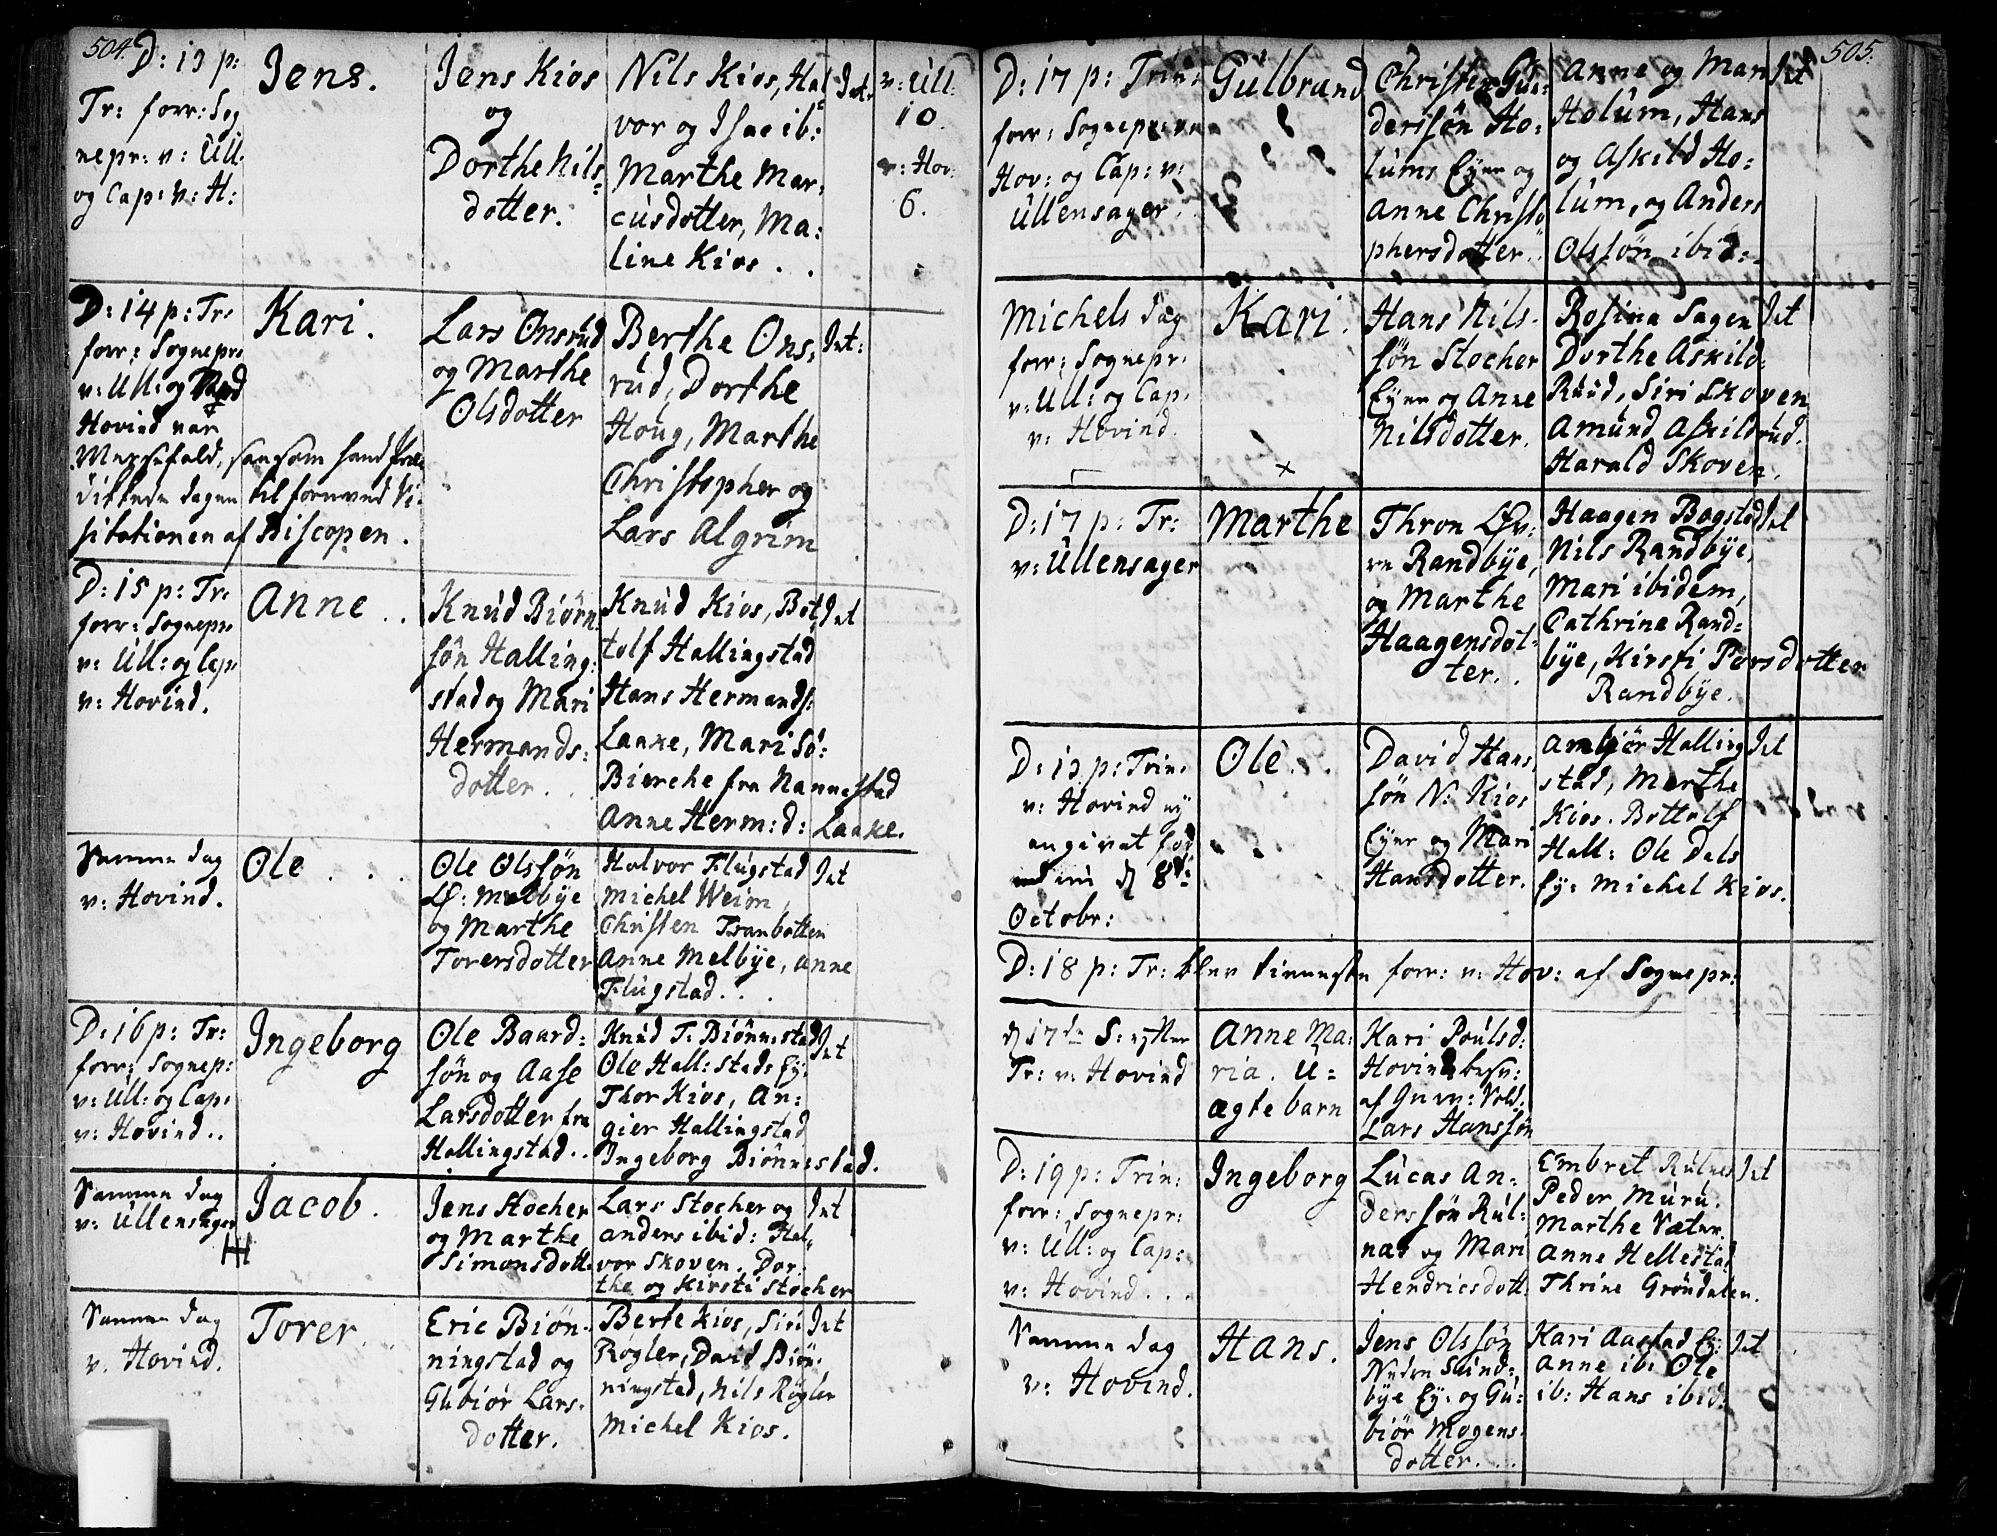 504.
D: 13 p:
Tr: forr: Sog
nepr: v: Ull.
og Cap: v: H:
Jens.
Jens Kios
og
Dorthe Nils
dotter.
Nils Kios, Hal
vor og Isac ib:
Marthe Mar:
cusdotter, Ma:
line Kios . .
Int.
v: Ull:
10.
v: Hov:
6.
D: 14 p: Tr:
forr: Sognepr:
v: Ull: og
Hovind var
Messefald, saasom hand
dittede dagen til fornved Vi:
sitationen af Biscopen.
Kari.
Lars Onsrud
og Marthe
Olsdotter
Berthe Ons:
rud, Dorthe
Houg, Marthe
Christopher og
Lars Algrim
Int:
D: 15 p: Tr:
forr: Sognepr
v: Ull: og Cap
v: Hovind.
Anne . .
Knud Biörn
sön Halling:
stad og Mari
Hermands:
dotter . .
Knud Kios, Bot
tolf Hallingstad
Hans Hermands:
Laake, Mari Sö:
Bierche fra Nannestad
Anne Herm: d: Laake.
Int
Samme dag
v: Hovind.
Ole . . .
Ole Olssön
Lö: Melbye
og Marthe
Torersdotter
Halvor Flugstad
Michel Weim,
Christen Tranbotten
Anne Melbye, Anne
Flugstad . . .
Int
D: 16 p: Tr:
forr: Sognep:
v: Ull: og Cap:
v: Hovind..
Ingeborg
Ole Baard:
sön og Aase
Larsdotter fra
Hallingstad..
Knud T. Biönnestad
Ole Hall: stads Ey:
Thor Kios, An:
gier Hallingstad
Ingeborg Biönnestad.
Int
Samme dag
v: Ullensager
Jacob.
Jens Stocher
og Marthe
Simonsdott.
Lars Stocher og
Anders ibid: Hal:
vor Skoven. Dor:
the og Kirsti Stocher
Int
Samme dag
v. Hovind.
Torer
Eric Biön:
ningstad og
Gubiör Lars:
dotter.
Berte Kios, Siri
Rögler, David Biön:
ningstad, Nils Rögler
Michel Kios.
Int
505.
D: 17 p: Trin:
forr: Sognepr:
Hov: og Cap: v:
Ullensager.
Gulbrand
Christen Gun:
derssön Ho:
lums Eyer og
Anne Christo
phersdotter.
Anne og Mari
Holum, Hans
og Askild Ho:
lum, og Anders
Olssön ibid:
Int
Michels dag
forr: Sognepr.
v: Ull: og Cap.
v: Hovind.
Kari.
×
Hans Nils:
sön Stocher
Eyer og Anne
Nilsdotter.
Rosina Sagen
Dorthe Askild:
Ruud, Siri Skoven
Amund Askildrud.
Harald Skoven.
Int
D: 17 p: Tr:
v: Ullensager
Marthe
Thron Öv:
re Randbye,
og Marthe
Haagensdot:
ter..
Haagen Bogstad
Nils Randbye,
Mari ibidem,
Cathrine Rand:
bye, Kirsti Persdotter
Randbye.
Int
D: 13 p: Trin.
v: Hovind ey
angivet för
8de
Octobr:
Ole..
David Hans:
sön N: Kios
Eyer og Mari
Hansdotter.
Ambiör Halling
stad, Marthe
Kios. Bottolf
Hall: Ole Dals
Ey: Michel Kios.
Int
D: 18 p: Tr: blev tienneste forr: v: Hov: af Sognepr:
d 17de S: efter
Tr: v: Hovind
Anne Ma:
ria. U=
ægte barn
Kari Poulsd:
Hovind besv:
af Lars Hanssön
D: 19 p: Trin:
forr: Sognepr:
v: Ull: og Cap:
v: Hovind...
Ingeborg
Lucas An:
derssön Rul:
nas og Mari
Hendricsdott.
Embret Rulnes
Peder Muru.
Marthe Sætur.
Anne Hellestad
Thrine Gröndalen.
Int
Samme dag
v: Hovind.
Hans.
Jens Olssön
Neden Sund:
bye Ey: og Gu:
biör Mogens:
dotter...
Kari Aastad Ey:
Anne ib: Ole
ib: Hans ibid:
Int